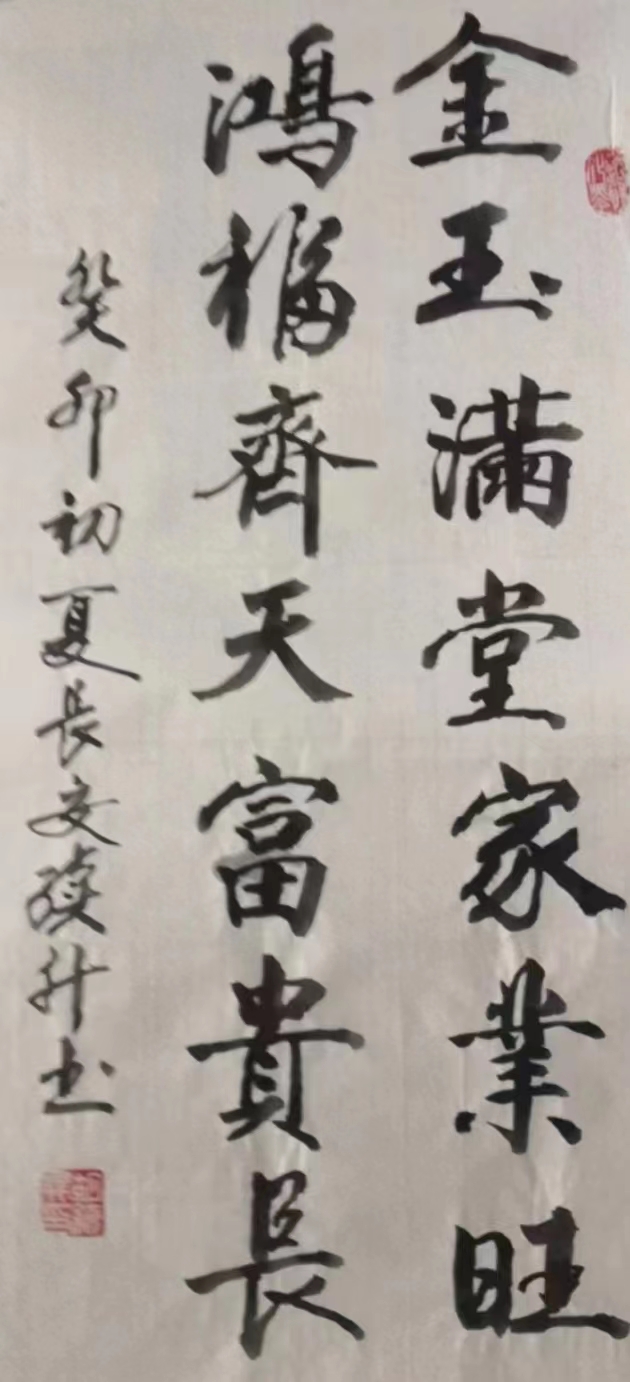 金玉滿堂家業旺
鴻福齊天富貴長
癸卯初夏長安
升书